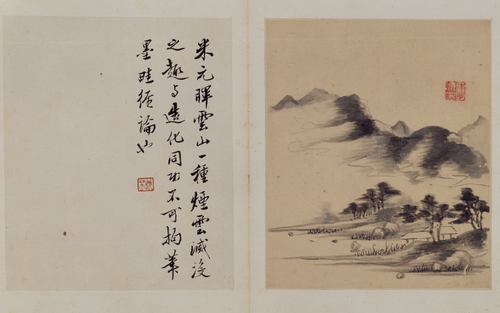 米元暉雲山一種煙雲滅沒
之趣与造化同功不可拘筆
墨畦徑論也